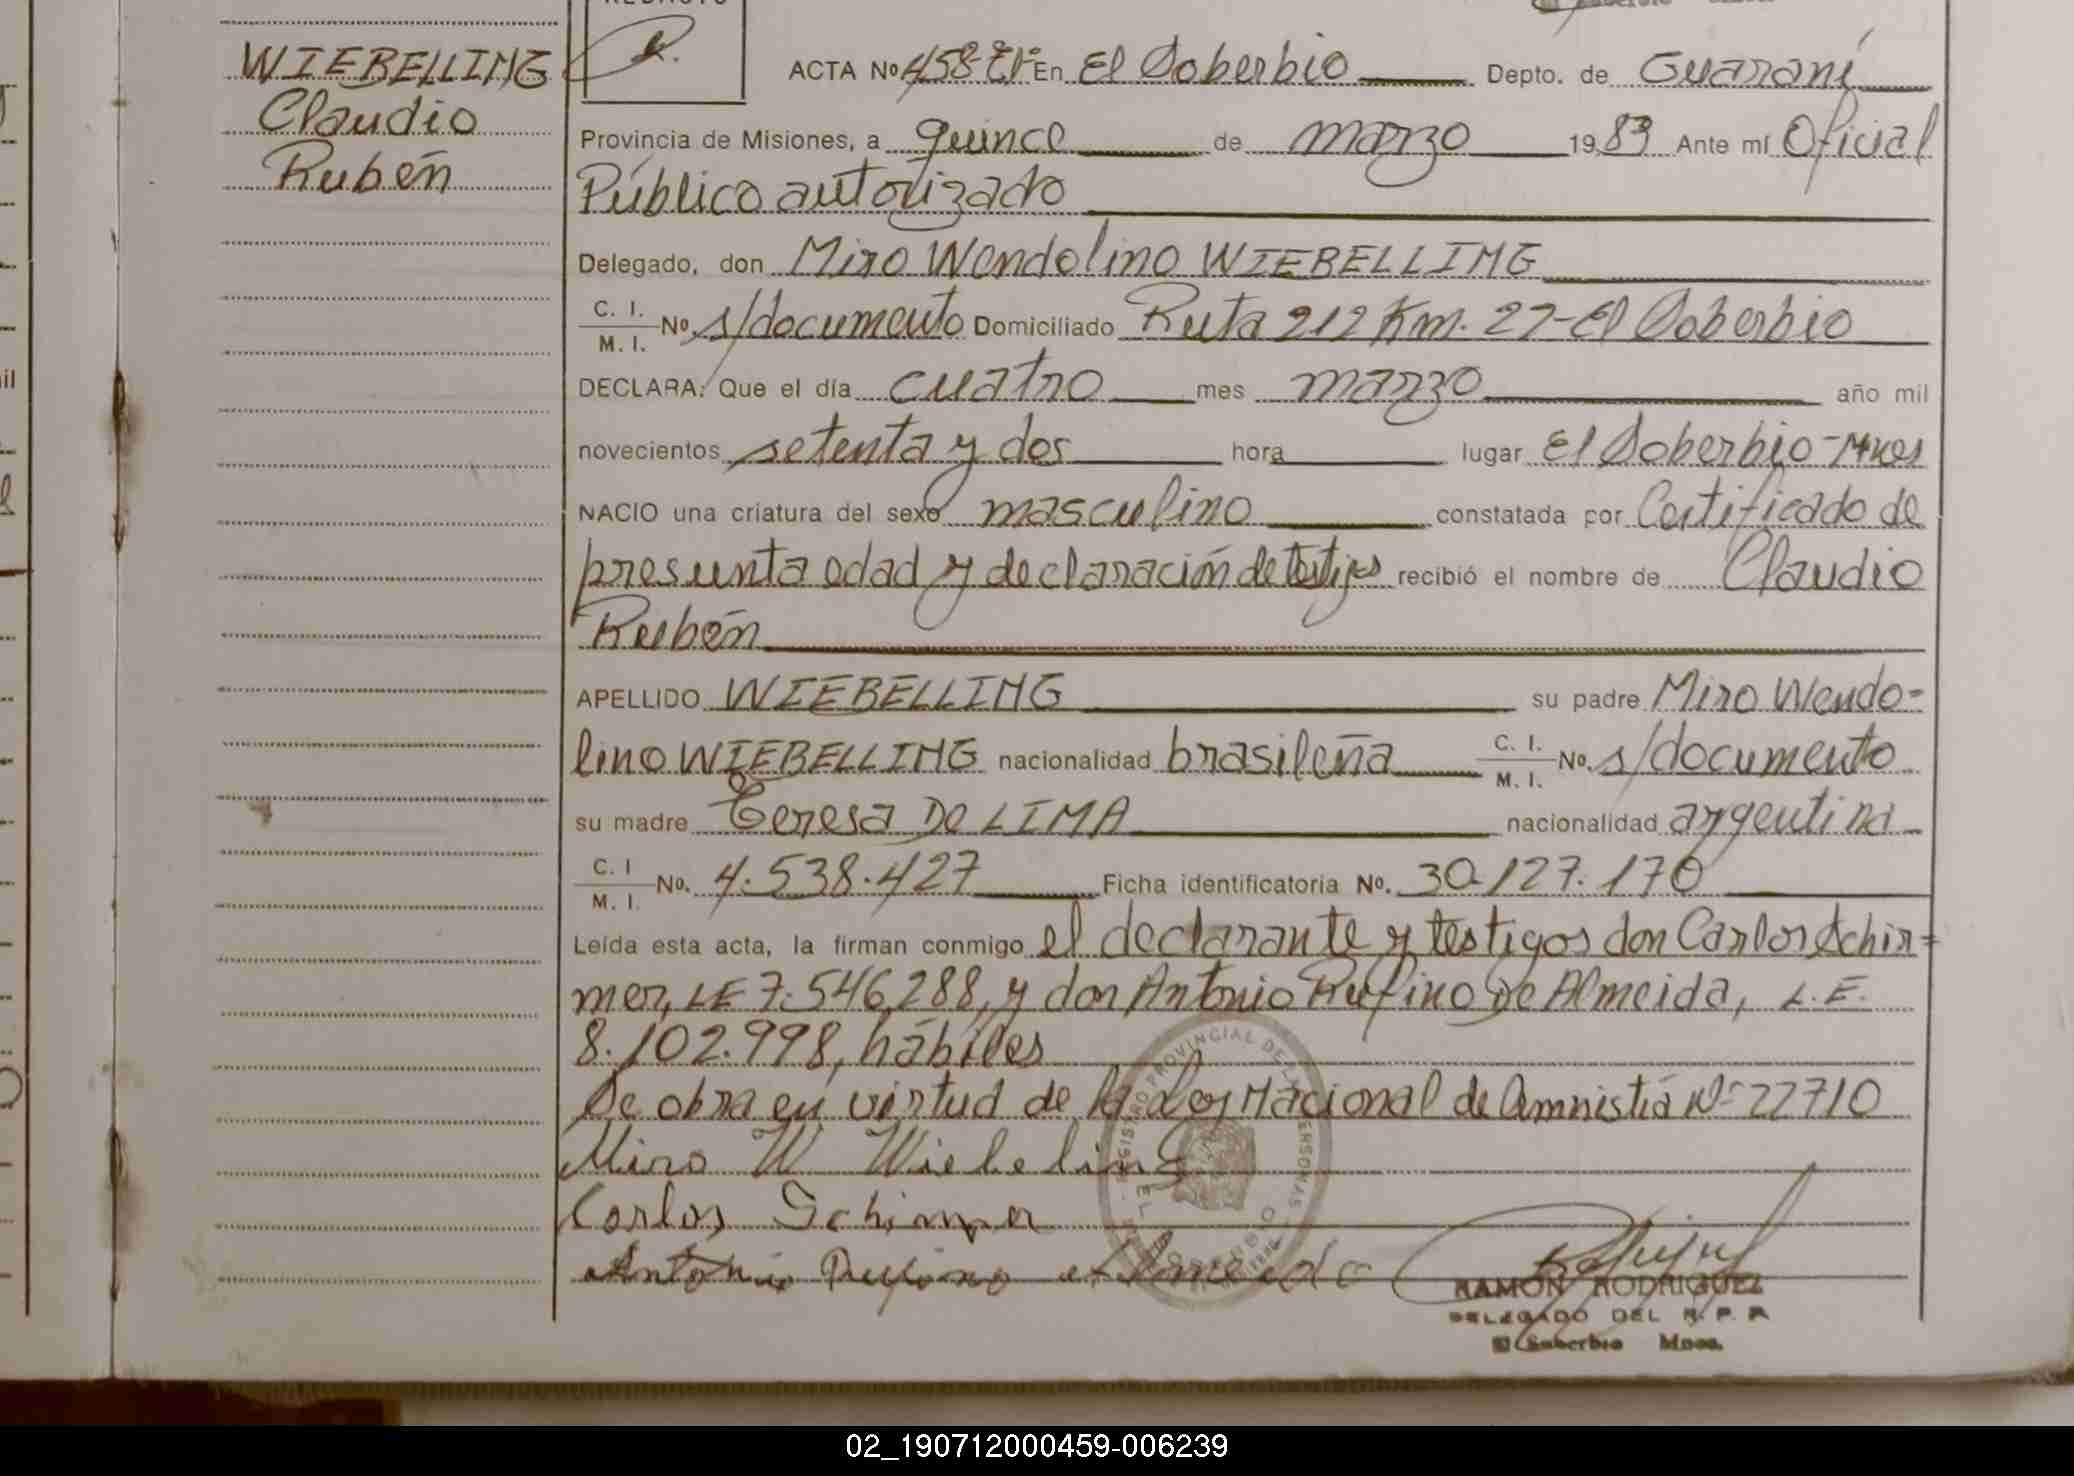 WIEBELLING
Claudio
Rubén
REDACTO
ACTA Nº 458-Eª- En El Soberbio Depto. de Guaraní
Provincia de Misiones, a quince de marzo 1983 Ante mí Oficial
Público autorizado
Delegado, don Miro Wendolino WIEBELLING
C. I. / M. I. Nº. s/documento Domiciliado Ruta 212 Km. 27-El Soberbio
DECLARA: Que el día cuatro mes marzo año mil
novecientos setenta y dos hora lugar El Soberbio-Mnes
NACIO una criatura del sexo masculino constatada por Certificado de
presunta edad y declaración de testigos recibió el nombre de Claudio
Rubén
APELLIDO WIEBELLING su padre Miro Wendo-
lino WIEBELLING nacionalidad brasileña C. I. / M. I. Nº. s/documento
su madre Teresa DE LIMA nacionalidad argentina
C. I / M. I. Nº. 4.538.427 Ficha identificatoria Nº. 30.127.170
Leída esta acta, la firman conmigo el declarante y testigos don Carlos Schir-
mer, LE 7.546.288, y don Antonio Rufino De Almeida, L.E.
8.102.998, hábiles
Se obra en virtud de la Ley Nacional de Amnistía Nº 22710
Miro W Wiebeling
Carlos Schirmer
Antonio Rufino de Almeida
REGISTRO PROVINCIAL DE LAS PERSONAS
RAMON RODRIGUEZ
DELEGADO DEL R. P. P.
El Soberbio Mnes.
02_190712000459-006239